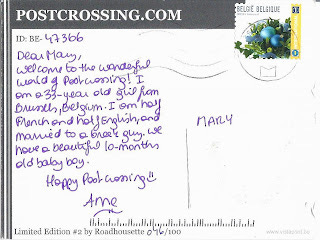 POSTCROSSING.COM
ID: BE-47366
BELGIË BELGIQUE
Dear Mary,
Welcome to the wonderful
world of Postcrossing! I
am a 33-year old girl from
Brussels, Belgium. I am half
French and half English, and
married to a Greek guy. We
have a beautiful 10-months
old baby boy.
Happy Postcrossing!!
Anne
MARY
Limited Edition #2 by Roadhousette 046/100